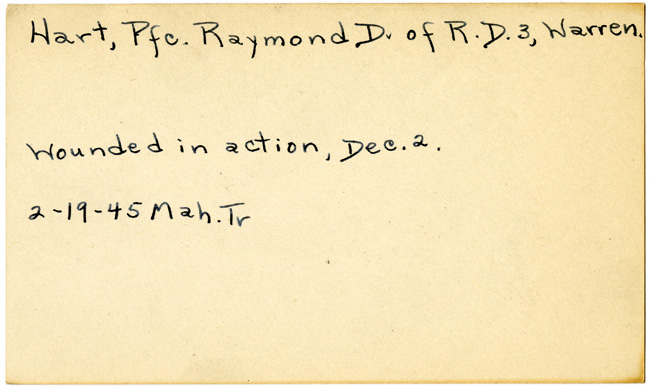 Hart, Pfc. Raymond D. of R.D. 3, Warren.
Wounded in action, Dec. 2.
2-19-45 Mah. Tr